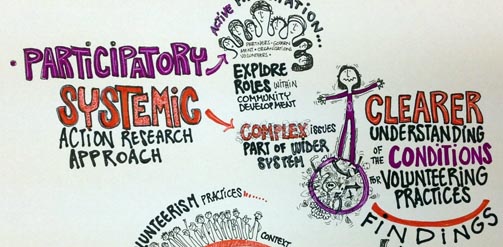 ACTIVE
PARTNERS-GOVERN
MENT-ORGANISATIONS
VOLUNTEERS-
PARTICIPATORY
SYSTEMIC
ACTION RESEARCH
APPROACH
EXPLORE
ROLES WITHIN
COMMUNITY
DEVELOPMENT
COMPLEX ISSUES
PART OF WIDER
SYSTEM
CLEARER
UNDERSTANDING
OF THE CONDITIONS
FOR VOLUNTEERING
PRACTICES
FINDINGS
VOLUNTEERISM PRACTICES
CONTEXT